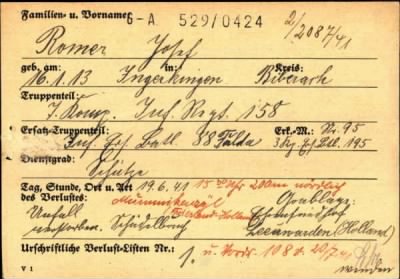 Familien- u. Vorname: G-A 529/0424 2/2087/41
Romer Josef
geb. am: in: Kreis:
16.1.13 Ingerkingen Biberach
Truppenteil:
7. Komp. Inf. Regt. 158
Ersatz-Truppenteil: Erk.-M.: Nr. 95
Inf. Ers. Batl. 88 Fulda 3 Kp. Inf. Btl. 195
Dienstgrad:
Schütze
Tag, Stunde, Ort u. Art 19.6.41 15 00 Uhr 200m nördlich
des Verlustes: Grablage:
Unfall Terland-Holland
Schädelbruch Leeuwarden (Holland)
Urschriftliche Verlust-Listen Nr.: 1. u. 108 v.
V 1